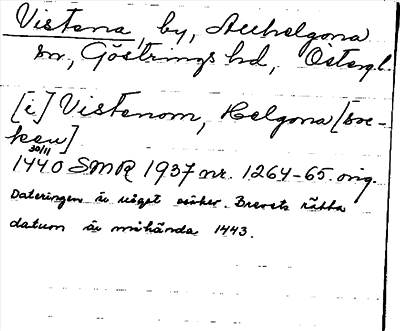 Vistena, by, Allhelgona
sn, Göstrings hd, Östergl.
[i] Vistenom, Helgona [soc-
ken]
30/11
1440 SMR 1937 nr. 1264-65. orig.
Dateringen är något osäker. Brevets rätta
datum är möjhända 1443.